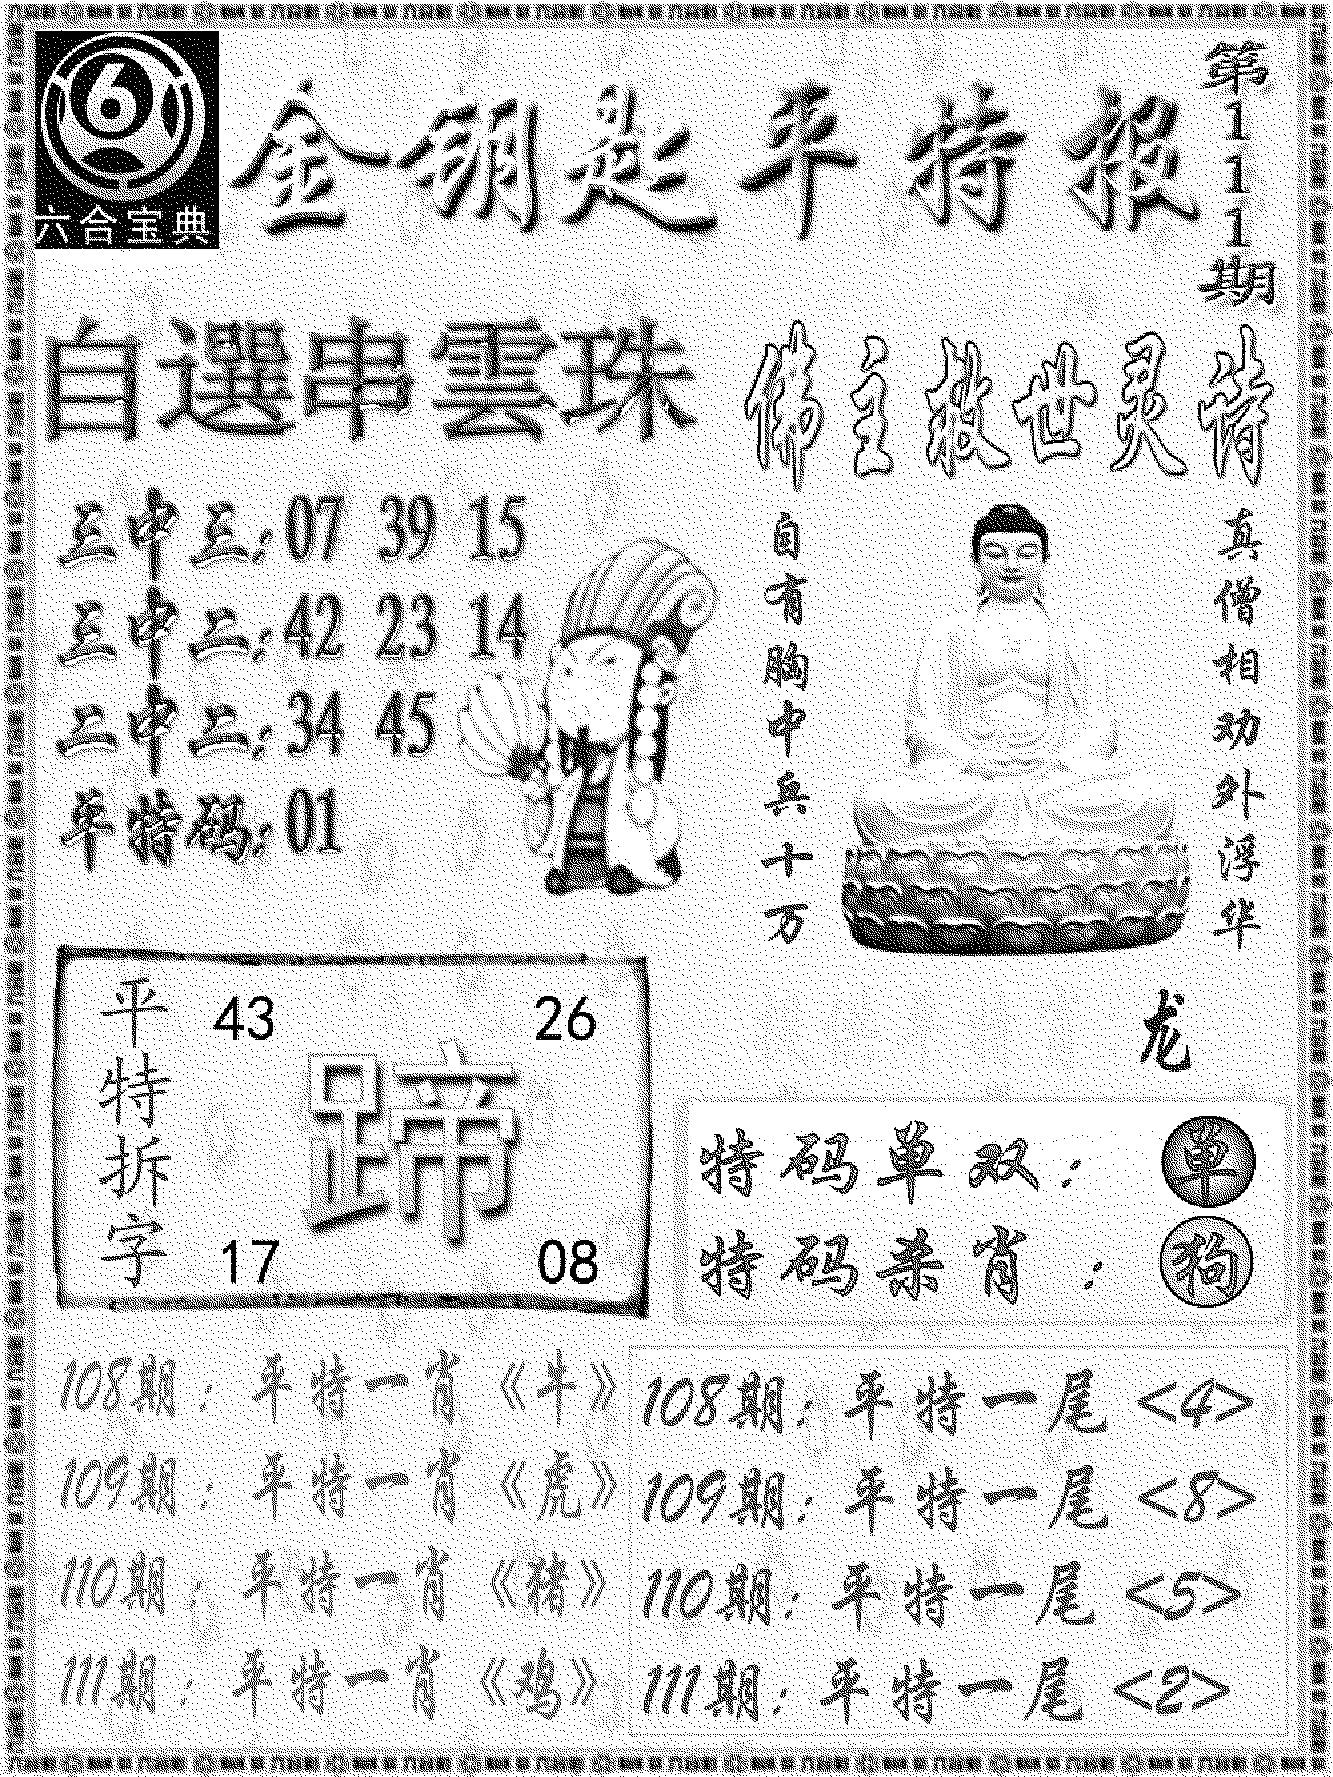 6
六合宝典
金钥匙平特报
第111期
自選串雲珠
三中三:07 39 15
三中二:42 23 14
二中二:34 45
单特码:01
佛主救世灵诗
真僧相劝外浮华
自有胸中兵十万
龙
平特拆字
43 26
蹄
17 08
特码单双:单
特码杀肖:狗
108期:平特一肖《牛》
109期:平特一肖《虎》
110期:平特一肖《猪》
111期:平特一肖《鸡》
108期:平特一尾<4>
109期:平特一尾<8>
110期:平特一尾<5>
111期:平特一尾<2>